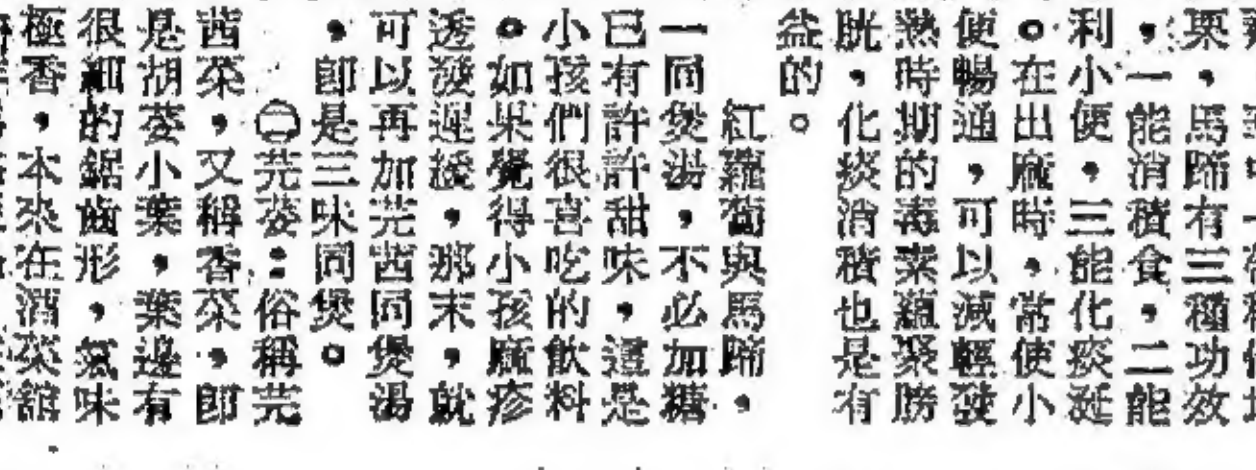 栗,馬蹄有三種功效
,一能消積食,二能
利小便,三能化痰涎
。在出痲時,常使小
便暢通,可以減輕發
熱時期的毒素蘊聚膀
胱,化痰消積也是有
益的。
紅蘿蔔與馬蹄,
一同煲湯,不必加糖,
已有許許甜味,這是
小孩們很喜吃的飲料
。如果覺得小孩痲疹
透發遲緩,那末,就
可以再加芫茜同煲湯
,卽是三味同煲。
㊁芫荽:俗稱芫
茜菜,又稱香菜,卽
是胡荽小葉,葉邊有
很細的鋸齒形,氣味
極香,本來在酒菜館